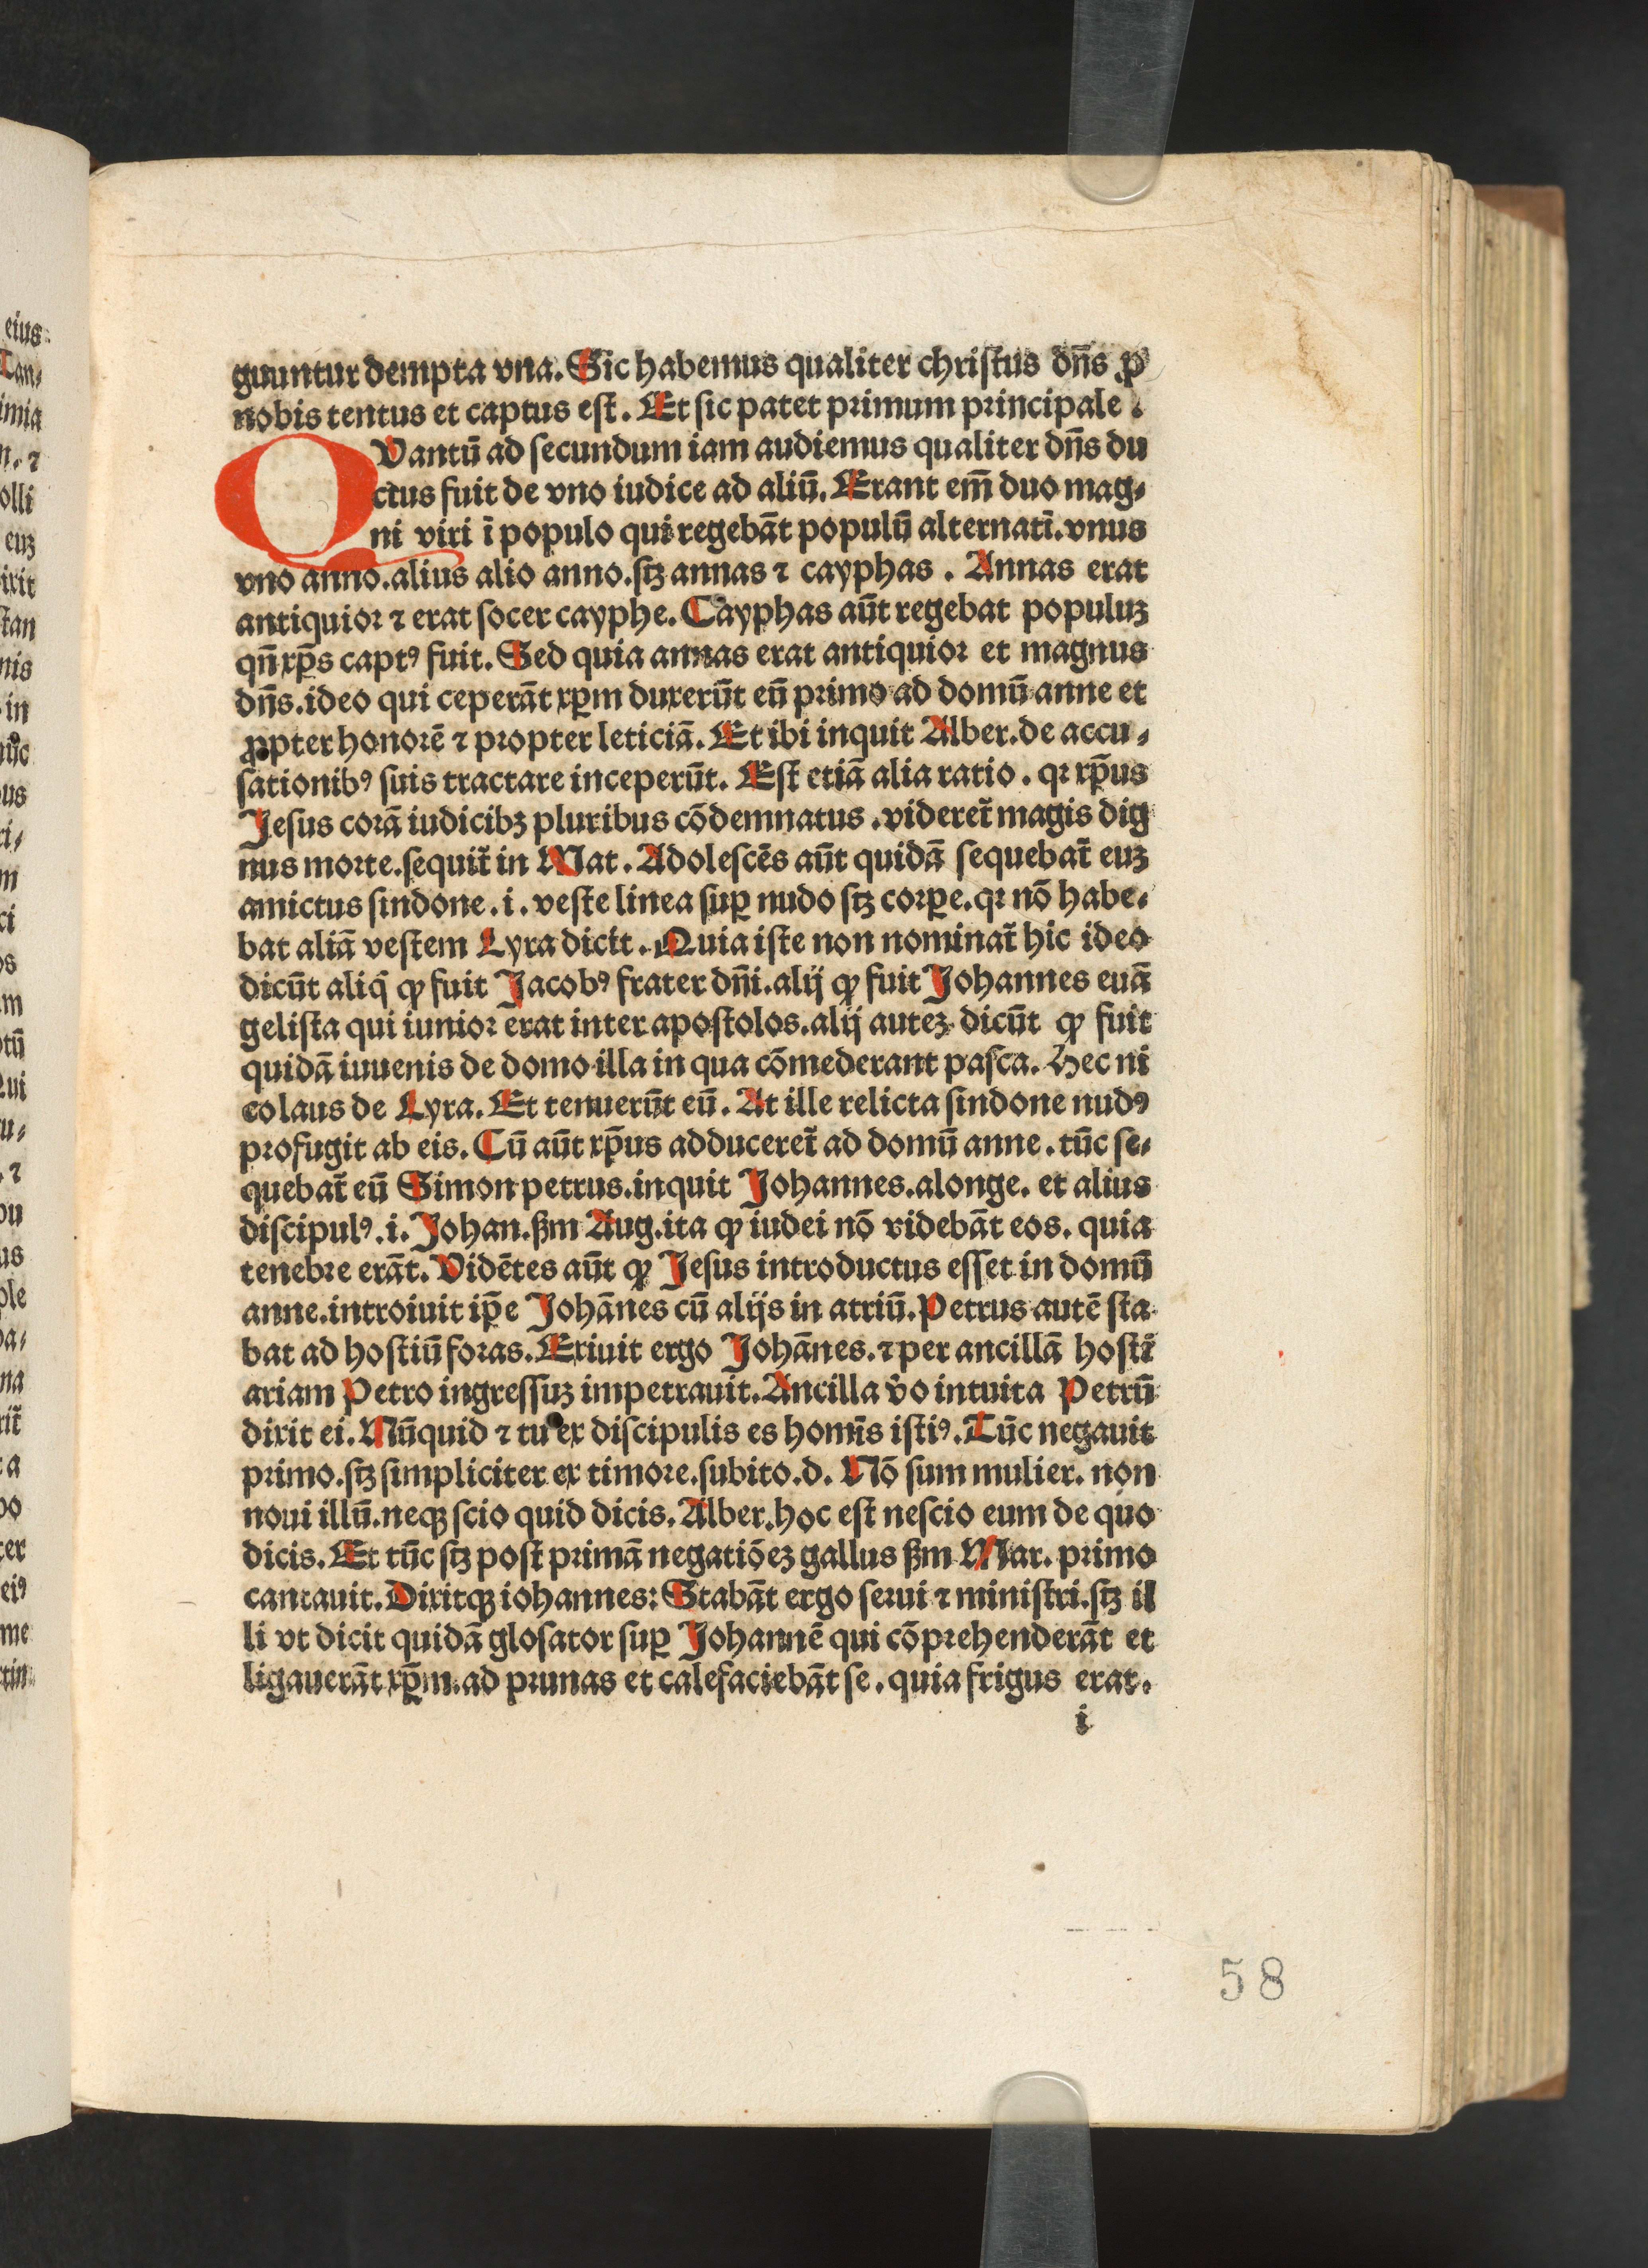 guuntur dempta vna. Sic habemus qualiter christus dn̄s ꝓ
nobis tentus et captus est. Et sic patet primum principale.
QVantū ad secundum iam audiemus qualiter dn̄s du
ctus fuit de vno iudice ad aliū. Erant em̄ duo mag⸗
ni viri ī populo qui regebāt populū alternatī. vnus
vno anno. alius alio anno. sꝫ annas ⁊ cayphas. Annas erat
antiquior ⁊ erat socer cayphe. Cayphas aūt regebat populuꝫ
qn̄ xp̄s captꝰ fuit. Sed quia annas erat antiquior et magnus
dn̄s. ideo qui ceperāt xp̄m duxerūt eū primo ad domū anne et
ꝓpter honorē ⁊ propter leticiā. Et ibi inquit Alber. de accu⸗
sationibꝰ suis tractare inceperūt. Est etiā alia ratio. qꝛ xp̄us
Jesus corā iudicibꝫ pluribus cōdemnatus. videret̄ magis dig
nus morte. sequit̄ in Mat. Adolescēs aūt quidā sequebat̄ euꝫ
amictus sindone. i. veste linea suꝑ nudo sꝫ corꝑe. qꝛ nō habe⸗
bat aliā vestem Lyra dicit. Quia iste non nominat̄ hic ideo
dicūt aliq̄ ꝙ fuit Jacobꝰ frater dn̄i. alij ꝙ fuit Johannes euā
gelista qui iunior erat inter apostolos. alij auteꝫ dicūt ꝙ fuit
quidā iuuenis de domo illa in qua cōmederant pasca. Hec ni
colaus de Lyra. Et tenuerūt eū. At ille relicta sindone nudꝰ
profugit ab eis. Cū aūt xp̄us adduceret̄ ad domū anne. tūc se⸗
quebat̄ eū Simon petrus. inquit Johannes. alonge. et alius
discipulꝰ. i. Johan. ßm Aug. ita ꝙ iudei nō videbāt eos. quia
tenebre erāt. Vidētes aūt ꝙ Jesus introductus esset in domū
anne. introiuit ip̄e Johānes cū alijs in atriū. Petrus autē sta
bat ad hostiū foras. Exiuit ergo Johānes. ⁊ per ancillā hosti
ariam Petro ingressuꝫ impetrauit. Ancilla v̄o intuita Petrū
dixit ei. Nūquid ⁊ tu ex discipulis es homīs istiꝰ. Tūc negauit
primo. sꝫ simpliciter ex timore. subito. d. Nō sum mulier. non
noui illū. neqꝫ scio quid dicis. Alber. hoc est nescio eum de quo
dicis. Et tūc sꝫ post primā negatiōeꝫ gallus ßm Mar. primo
cantauit. Dixitqꝫ iohannes: Stabāt ergo serui ⁊ ministri. sꝫ il
li vt dicit quidā glosator suꝑ Johannē qui cōprehenderāt et
ligauerāt xp̄m. ad prunas et calefaciebāt se. quia frigus erat.
i
58